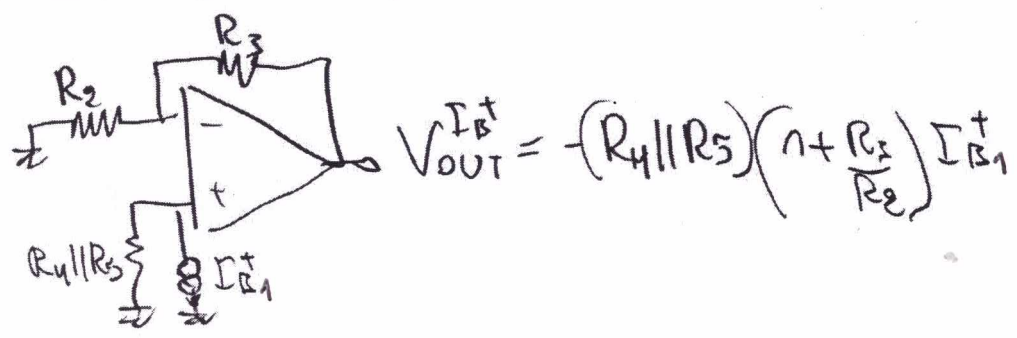 R3
R2
−
+
R4||R5
I_B1^+
V_OUT^{I_B^+} = -(R4||R5)(1+R3/R2) I_B1^+